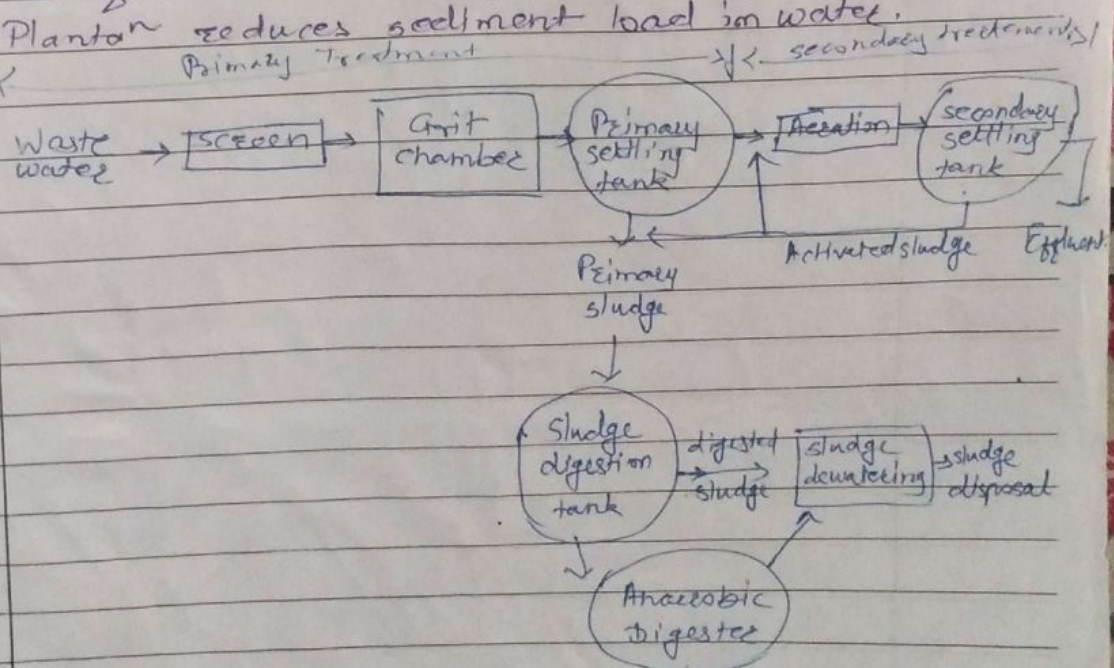 Plantan reduces sediment load in water.
Primary Treatment
secondary treatement
Waste
water
screen
Grit
chamber
Primary
settling
tank
Aeration
secondary
settling
tank
Activated sludge
Effluent
Primary
sludge
Sludge
digestion
tank
digested
sludge
sludge
dewatering
sludge
disposal
Anaerobic
Digester